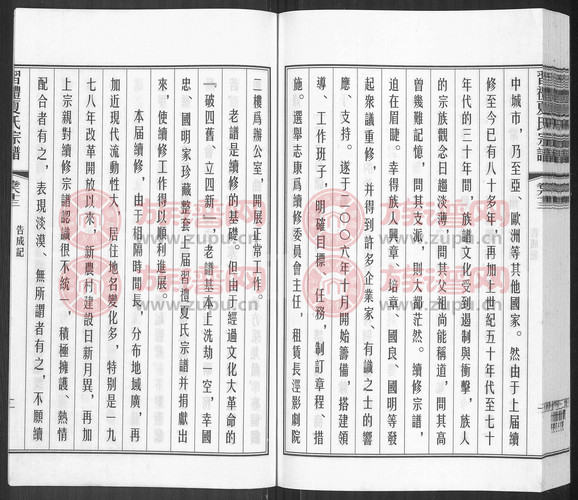 中城市，乃至亞、歐洲等其他國家。然由于上届續
修至今已有八十多年，再加上紀五十年代至七十
年代的三十年間，族譜文化受到遏制與衝擊，族人
的宗族觀念日趨淡薄，問其父祖尚能稱道，問其高
曾幾難記憶，問其支派，則大都茫然。續修宗譜，
迫在眉睫。幸得族人興章、培章、國良、國明等發
起衆議重修，并得到許多企業家、有識之士的響
應、支持。遂于二〇〇六年十月開始籌備，搭建領
導、工作班子，明確目標、任務，制訂章程、措
施。選舉志康爲續修委員會主任，租賃長涇影劇院
習禮夏氏宗譜
二樓爲辦公室，開展正常工作。
老譜是續修的基礎。但由于經過文化大革命的
『破四舊、立四新』，老譜基本上洗劫一空，幸國
忠、國明家珍藏整套届届習禮夏氏宗譜并捐獻出
來，使續修工作得以順利進展。
本届續修，由于相隔時間長，分布地域廣，再
加近現代流動性大，居住地名變化多，特别是一九
七八年改革開放以來，新農村建設日新月異，再加
上宗親對續修宗譜認識很不統一，積極擁護、熱情
配合者有之，表現淡漠、無所謂者有之，不願續
習禮夏氏宗譜
告成記
族譜网
www.zupu.cn